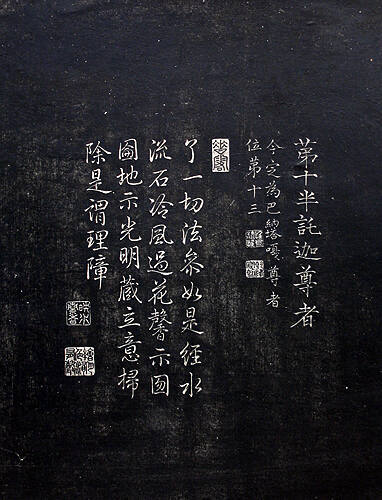 第十半託迦尊者
今定為巴納塔嘎尊者
位第十三
了一切法參如是經水
流石冷風過花馨示圓
圖地示光明藏立意掃
除是謂理障